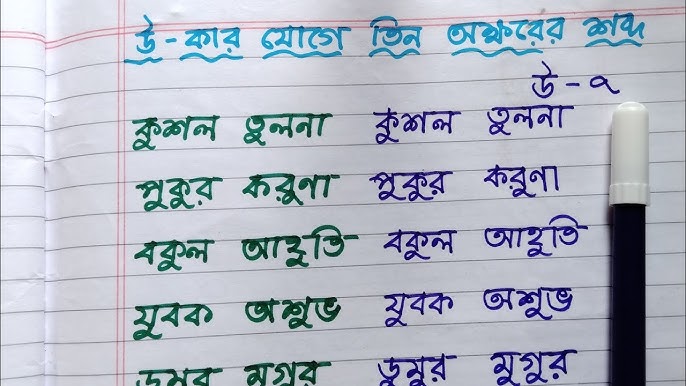 উ-কার যোগে তিন অক্ষরের শব্দ
উ - ু
কুশল তুলনা কুশল তুলনা
পুকুর করুণা পুকুর করুণা
বকুল আহুতি বকুল আহুতি
যুবক অশুভ যুবক অশুভ
ডুমুর মুগুর ডুমুর মুগুর